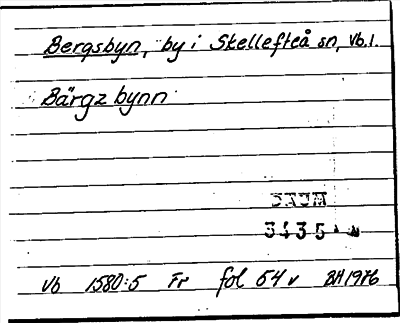 Bergsbyn, by i Skellefteå sn, Vb.l.
Bärgz bynn
DAUM
3435
Vb 1580:5 Fr fol 64 v BH 1976